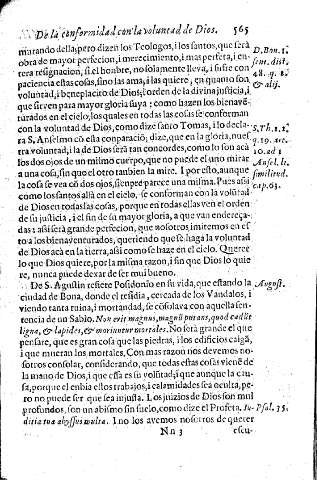 De la conformidad con la voluntad de Dios. 565
marando della, pero dizen los Teologos, i los santos, que será
obra de mayor perfecion, i merecimiento, i mas perfeta, i en-
tera resignacion, si el hombre, no solamente lleva, i sufre con
paciencia estas cosas, sino las ama, i las quiere, en quanto son
voluntad, i beneplacito de Dios, i orden de la divina justicia, i
que sirven para mayor gloria suya: como hazen los bienavē-
turados en el cielo, los quales en todas las cosas se conforman
con la voluntad de Dios, como dize santo Tomas, i lo decla-
ra S. Anselmo cō esta conparació; dize, que en la gloria, nues
tra volūtad, i la de Dios será tan concordes, como lo son acá
los dos ojos de un mismo cuerpo, que no puede el uno mirar
a una cosa, sin que el otro tanbien la mire. I por esto, aunque
la cosa se vea cō dos ojos, sienpre parece una misma. Pues asi
como los santos allá en el cielo, se conforman con la volūtad
de Dios en todas las cosas, porque en todas ellas ven el orden
de su justicia, i el fin de su mayor gloria, a que van endereça-
das: asi será grande perfecion, que nosotros, imitemos en es
to a los bienaventurados, queriendo que se haga la voluntad
de Dios acá en la tierra, asi como se haze en el cielo. Querer
lo que Dios quiere, por la misma razon, i fin que Dios lo quie
re, nunca puede dexar de ser mui bueno.
De S. Agustin refiere Posidonio en su vida, que estando la
ciudad de Bona, donde el residia, cercada de los Vandalos, i
viendo tanta ruina, i mortandad, se cōsolava con aquella sen-
tencia de un Sabio. Non erit magnus, magnū putans, quod cadūt
ligna, & lapides, & moriuntur mortales. No será grande el que
pensare, que es gran cosa que las piedras, i los edificios caigā,
i que mueran los mortales. Con mas razon nos devemos no-
sotros consolar, considerando, que todas estas cosas vienē de
la mano de Dios, i que essa es su volūtad, i que aunque la cau-
sa, porque el enbia estos trabajos, i calamidades sea oculta, pe-
ro no puede ser que sea injusta. Los juizios de Dios son mui
profundos, son un abismo sin suelo, como dize el Profeta, Iu-
ditia tua abyssus multa. I no los avemos nosotros de querer
Nn 3 escu-
D. Bon. 1.
sent. dist.
48. q. 2.
& alij.
S. Th. 1. 2.
q. 19. art.
10. ad 1
Ansel. li.
similitud.
cap. 63.
August.
Psal. 35.